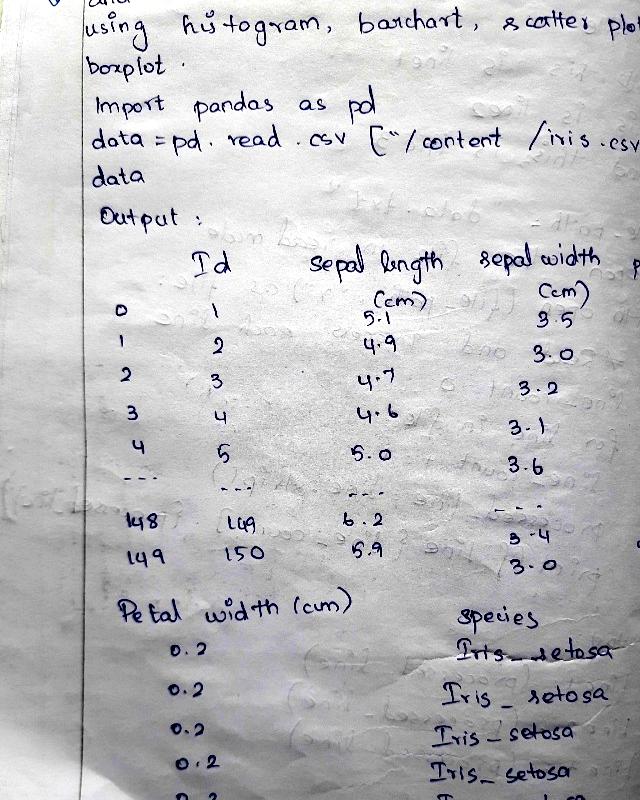 and
using histogram, barchart, scatter plot
boxplot.
Import pandas as pd
data = pd. read . csv ["/content /iris.csv
data
Output :
Id sepal length (cm) sepal width (cm) p
0 1 5.1 3.5
1 2 4.9 3.0
2 3 4.7 3.2
3 4 4.6 3.1
4 5 5.0 3.6
--- --- --- ---
148 149 6.2 3.4
149 150 5.9 3.0
Petal width (cm) species
0.2 Iris_setosa
0.2 Iris_setosa
0.2 Iris_setosa
0.2 Iris_setosa
0.2